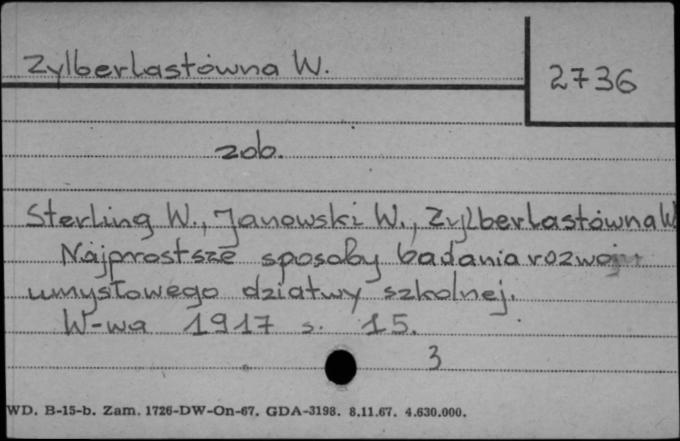 Zylberlastówna W.
2736
zob.
Sterling W., Janowski W., Zylberlastówna W
Najprostsze sposoby badania rozwoju
umysłowego dziatwy szkolnej.
W-wa 1917 s. 15.
3
WD. B-15-b. Zam. 1726-DW-On-67. GDA-3198. 8.11.67. 4.630.000.